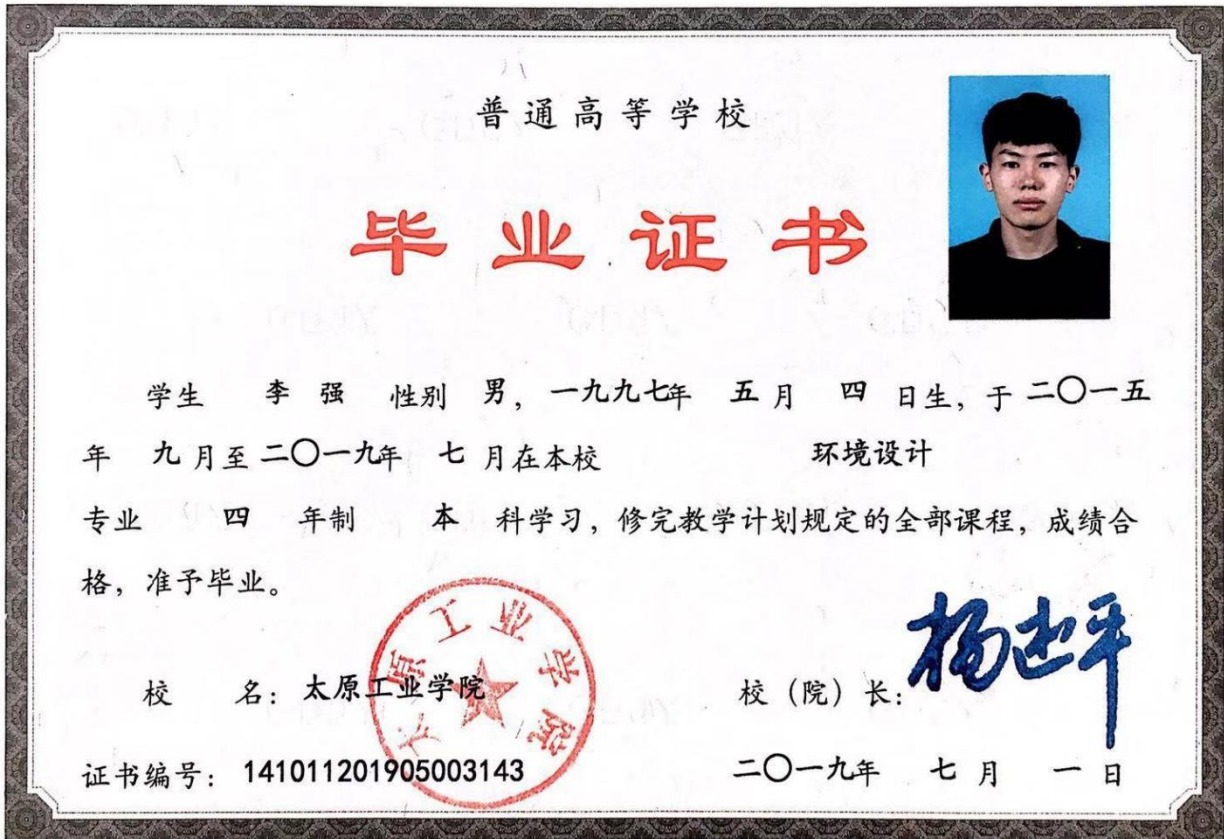 普通高等学校
毕业证书
学生 李强 性别 男，一九九七年 五月 四 日生，于二〇一五
年 九月至二〇一九年 七月在本校 环境设计
专业 四 年制 本 科学习，修完教学计划规定的全部课程，成绩合
格，准予毕业。
太原工业学院
校 名：太原工业学院 校（院）长：
证书编号：141011201905003143 二〇一九年 七月 一日